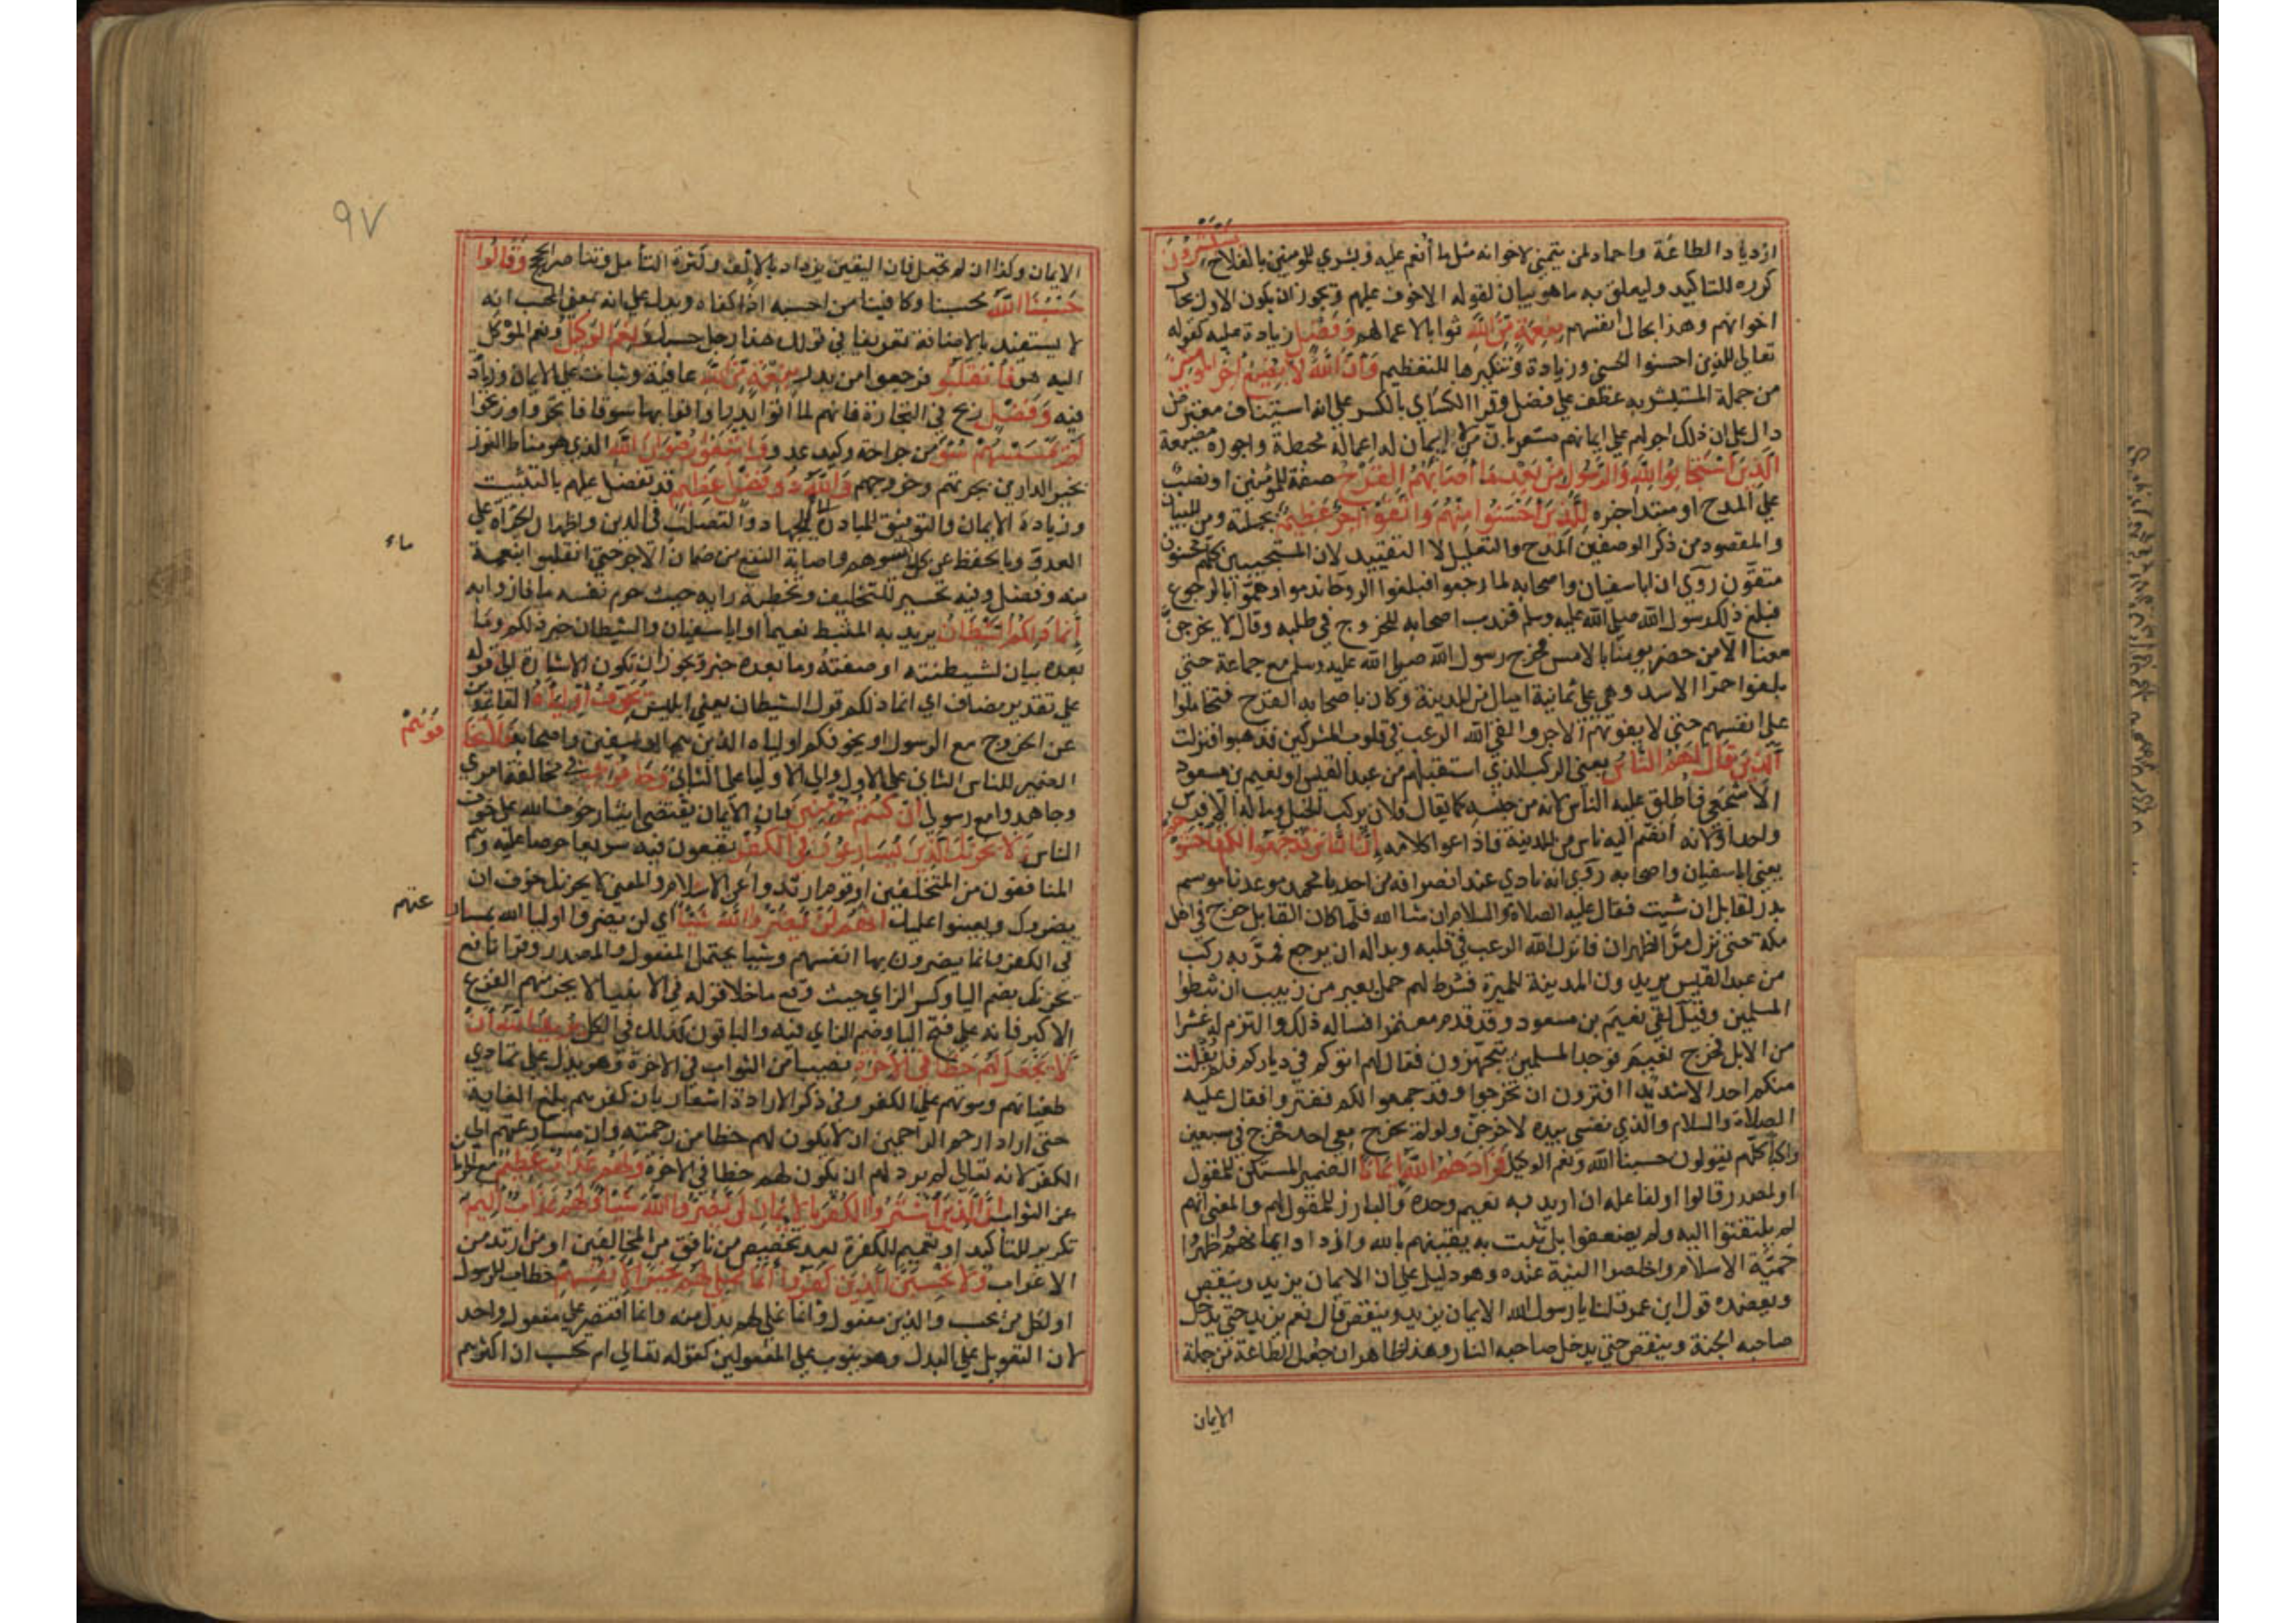 ازدياد الطاعة واحماد لمن يتمني لاخوانه مثل ما أنعم عليه وبشري للمومنين بالفلاح يستبشرون
كرره للتاكيد وليعلق به ما هو بيان لقوله الاخوف عليهم ويجوز ان يكون الاول بحال
اخوانهم وهذا بحال انفسهم بنعمة من الله ثوابا لاعمالهم وفضل زيادة عليه كقوله
تعالي للذين احسنوا الحسني وزيادة وتنكيرها للتعظيم وأن الله لا يضيع أجر المؤمنين
من جملة المستبشر به عطف علي فضل وقرا الكسائي بالكسر علي انه استيناف معترض
دال علي ان ذلك اجر لهم علي ايمانهم مشعر بان من لا إيمان له اعماله محبطة واجوره مضيعة
الذين استجابوا لله والرسول من بعد ما أصابهم القرح صفة للمؤمنين او نصب
علي المدح او مبتدا خبره للذين احسنوا منهم واتقوا أجر عظيم بجملته ومن للبيان
والمقصود من ذكر الوصفين المدح والتعليل لا التقييد لان المستجيبين كلهم محسنون
متقون روي ان ابا سفيان واصحابه لما رجعوا فبلغوا الروحا ندموا وهموا بالرجوع
فبلغ ذلك رسول الله صلي الله عليه وسلم فندب اصحابه للخروج في طلبه وقال لا يخرجن
معنا الا من حضر يومنا بالامس فخرج رسول الله صلي الله عليه وسلم مع جماعة حتي
بلغوا حمرا الاسد وهي علي ثمانية اميال من المدينة وكان باصحابه القرح فتحاملوا
علي انفسهم حتي لا يفوتهم الاجر والقي الله الرعب في قلوب المشركين فذهبوا فنزلت
الذين قال لهم الناس يعني الركب الذي استقبلهم من عبد القيس او نعيم بن مسعود
الأشجعي واطلق عليه الناس لانه من جنسه كما يقال فلان يركب الخيل وما له الا فرس
واحد او لانه انضم اليه ناس من المدينة واذاعوا كلامه إن الناس قد جمعوا لكم فاخشوهم
يعني ابا سفيان واصحابه روي انه نادي عند انصرافه من احد يا محمد موعدنا موسم
بدر لقابل ان شيت فقال عليه الصلاة والسلام ان شا الله فلما كان القابل خرج في اهل
مكة حتي نزل مر الظهران فانزل الله الرعب في قلبه وبدا له ان يرجع فمر به ركب
من عبد القيس يريدون المدينة للميرة فشرط لهم حمل بعير من زبيب ان ثبطوا
المسلمين وقيل لقي نعيم بن مسعود وقد قدم معتمرا فساله ذلك والتزم له عشرا
من الابل فخرج نعيم فوجد المسلمين يتجهزون فقال لهم اتوكم في دياركم فلم يفلت
منكم احد الا شديدا افترون ان تخرجوا وقد جمعوا لكم ففتروا فقال عليه
الصلاة والسلام والذي نفسي بيده لاخرجن ولو لم يخرج معي احد فخرج في سبعين
راكبا كلهم يقولون حسبنا الله ونعم الوكيل فزادهم الله إيمانا الضمير المستكن للمقول
او لمصدر قالوا او لفاعله ان اريد به نعيم وحده والبارز للمقول لهم والمعني انهم
لم يلتفتوا اليه ولم يضعفوا بل ثبت به يقينهم بالله وازداد ايمانهم واظهروا
حمية الاسلام واخلصوا النية عنده وهو دليل علي ان الايمان يزيد وينقص
ويعضده قول ابن عمر قلنا يا رسول الله الايمان يزيد وينقص قال نعم يزيد حتي يدخل
صاحبه الجنة وينقص حتي يدخل صاحبه النار وهذا ظاهر ان جعل الطاعة من جملة
الايمان
٩٧
الايمان وكذا ان لم تجعل فان اليقين يزداد بالإلف وكثرة التأمل وتناصر الحجج وقالوا
حسبنا الله محسبنا وكافينا من احسبه اذا كفاه ويدل علي انه بمعني المحسب انه
لا يستفيد بالاضافة تعريفا في قولك هذا رجل حسبك ونعم الوكيل ونعم الموكل
اليه هو فانقلبوا فرجعوا من بدر بنعمة من الله عافية وثبات علي الايمان وزيادة
فيه وفضل ربح في التجارة فانهم لما اتوا بدرا وافوا بها سوقا فاتجروا وربحوا
لم يمسسهم سوء من جراحة وكيد عدو واتبعوا رضوان الله الذي هو مناط الفوز
بخير الدارين بجرتهم وخروجهم والله ذو فضل عظيم قد تفضل عليهم بالتثبيت
وزيادة الايمان والتوفيق للمبادرة الي الجهاد والتصلب في الدين واظهار الجراة علي
العدو وبالحفظ عن كل ما يسوهم واصابة النفع من ضمان الاجر حتي انقلبوا بنعمة
ماء
منه وفضل وفيه تحسير للتخلف وتخطية رايه حيث حرم نفسه ما فازوا به
إنما ذلكم الشيطان يريد به المثبط نعيما او ابا سفيان والشيطان خبر ذلكم وما
بعده بيان لشيطنته او صفته وما بعده خبر ويجوز ان تكون الاشارة الي قوله
علي تقدير مضاف اي انما ذلكم قول الشيطان يعني ابليس يخوف أولياءه القاعدين
عن الخروج مع الرسول او يخوفكم اولياه الذين هم ابو سفين واصحابه فلا تخا
فوهم
الضمير للناس الثاني علي الاول والي الاوليا علي الثاني وخافون في مخالفة امري
وجاهدوا مع رسولي ان كنتم مؤمنين فان الايمان يقتضي ايثار خوف الله علي خوف
الناس ولا يحزنك الذين يسارعون في الكفر يقعون فيه سريعا حرصا عليه وهم
المنافقون من المتخلفين او قوم ارتدوا عن الاسلام والمعني لا يحزنك خوف ان
يضروك ويعينوا عليك انهم لن يضروا الله شيئا اي لن يضروا اوليا الله بمسار
عتهم
في الكفر وانما يضرون بها انفسهم وشيا يحتمل المفعول والمصدر وقرا نافع
يحزنك بضم اليا وكسر الزاي حيث وقع ما خلا قوله في الانبيا لا يحزنهم الفزع
الاكبر فانه علي فتح اليا وضم الزاي فيه والباقون كذلك في الكل يريد الله أن
لا يجعل لهم حظا في الآخرة نصيبا من الثواب في الاخرة وهو يدل علي تمادي
طغيانهم وموتهم علي الكفر وفي ذكر الارادة اشعار بان كفرهم بلغ الغاية
حتي اراد ارحم الراحمين ان لا يكون لهم حظا من رحمته وان مسارعتهم الي
الكفر لانه تعالي لم يرد لهم ان يكون لهم حظا في الاخرة ولهم عذاب عظيم مع الحرمان
عن الثواب ان الذين اشتروا الكفر بالايمان لن يضروا الله شيئا ولهم عذاب أليم
تكرير للتاكيد او تعميم للكفرة بعد تخصيص من نافق من المتخالفين او من ارتد من
الاعراب ولا تحسبن الذين كفروا أنما نملي لهم خير لأنفسهم خطاب للرسول
او لكل من يحسب والذين مفعول وانما نملي لهم بدل منه وانما اقتصر علي مفعول واحد
لان التعويل علي البدل وهو ينوب علي المفعولين كقوله تعالي ام تحسب ان اكثرهم